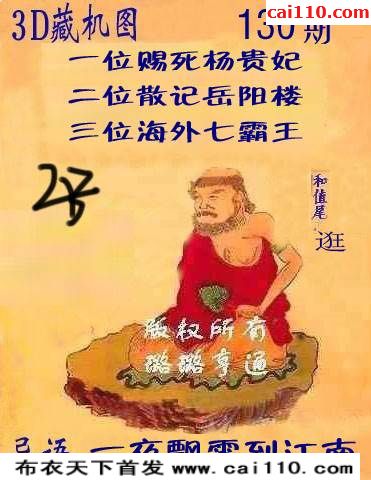 cai110.com
3D藏机图 130期
一位赐死杨贵妃
二位散记岳阳楼
三位海外七霸王
和值尾
逛
版权所有
璐璐亨通
忌语 一夜飘雪到江南
布衣天下首发 www.cai110.com